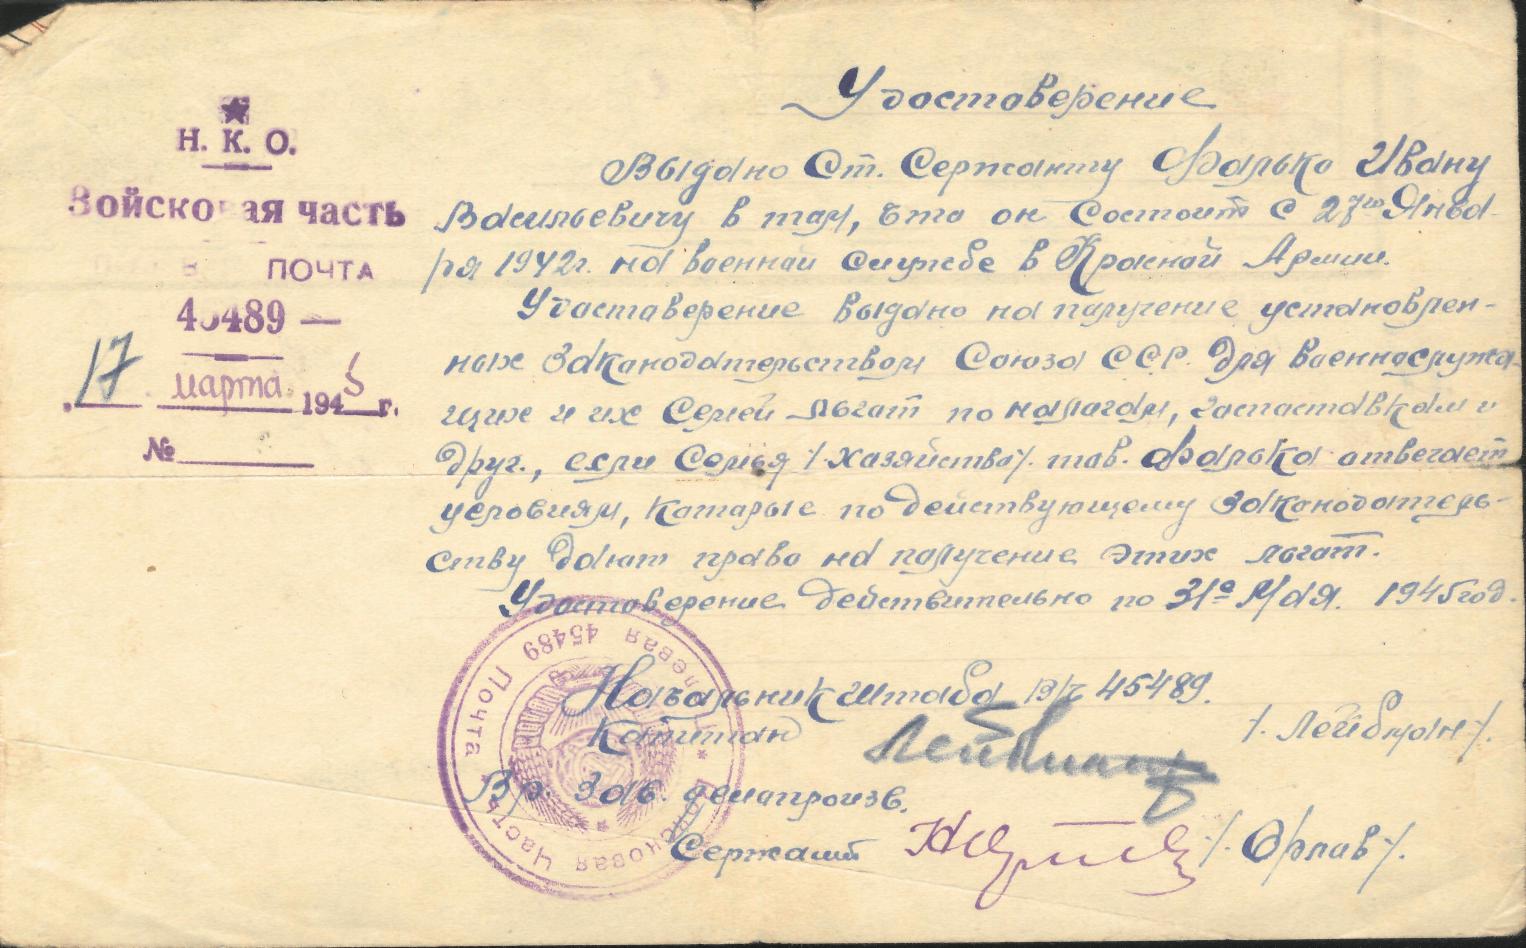 Н. К. О.
Войсковая часть
ПОЧТА
45489 —
17 марта 1945 г.
№
Удостоверение
Выдано Ст. Сержанту Фалько Ивану
Васильевичу в том, что он состоит с 27го Янва-
ря 1942г. на военной службе в Красной Армии.
Удостоверение выдано на получение установлен-
ных Законодательством Союза ССР. для военнослужа-
щих и их Семей льгот по налогам, госпоставкам и
друг., если Семья /.хозяйство/. тов. Фалько отвечает
условиям, которые по действующему законодатель-
ству дают право на получение этих льгот.
Удостоверение действительно по 31е Мая. 1945 год.
Начальник штаба в/ч 45489.
Капитан Лейбман /. Лейбман /.
Вр. Зав. делопроизв.
Сержант /. Орлов /.
Войсковая Часть Полевая Почта 45489